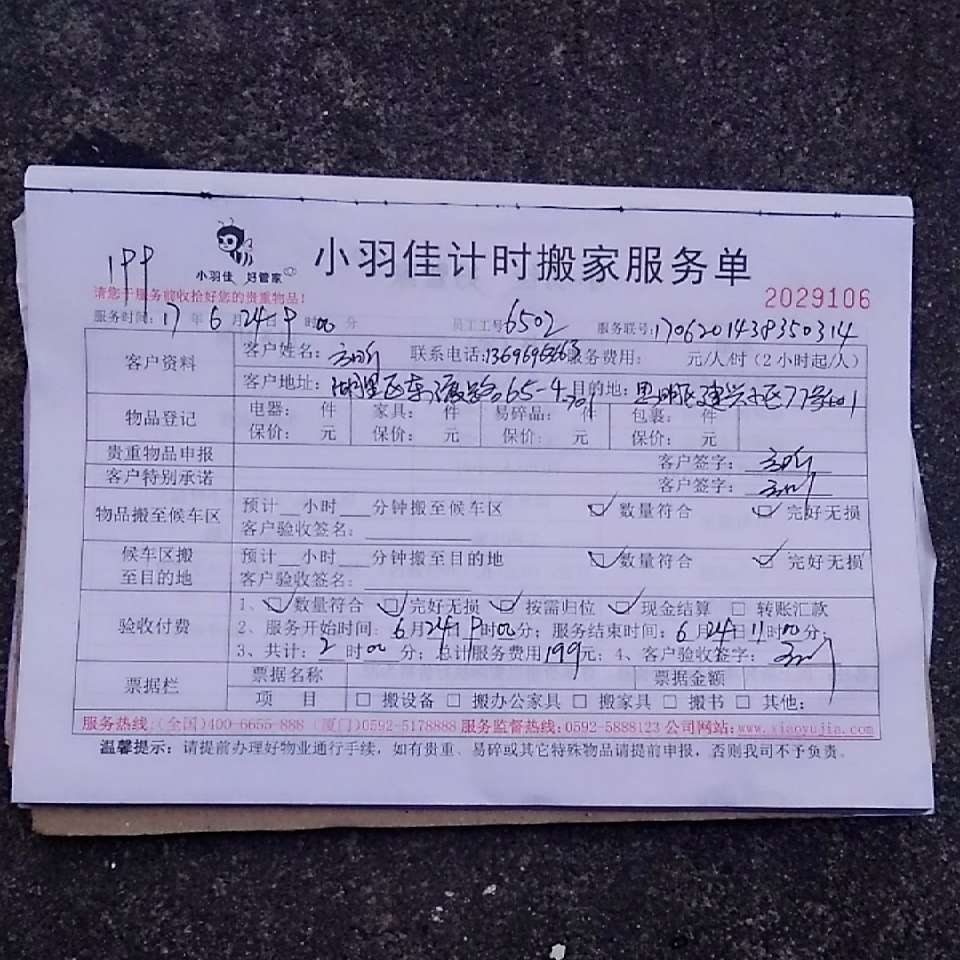 小羽佳 好管家
小羽佳计时搬家服务单
199
2029106
请您于服务前收拾好您的贵重物品!
服务时间: 17 年 6 月 24 日 9 时 00 分 员工工号 6502 服务联号: 1706201438350314
客户资料
客户姓名: 联系电话: 服务费用: 元/人/时 (2小时起/人)
客户地址: 湖里区东渡路65-4 目的地: 思明区建兴小区77号
物品登记
电器: 件 家具: 件 易碎品: 件 包裹: 件
保价: 元 保价: 元 保价: 元 保价: 元
贵重物品申报 客户签字:
客户特别承诺 客户签字:
物品搬至候车区
预计__小时___分钟搬至候车区 数量符合 完好无损
客户验收签名:
候车区搬至目的地
预计__小时___分钟搬至目的地 数量符合 完好无损
客户验收签名:
验收付费
1、数量符合 完好无损 按需归位 现金结算 □ 转账汇款
2、服务开始时间: 6 月 24 日 9 时 00 分; 服务结束时间: 6 月 24 日 11 时 00 分;
3、共计: 2 时 00 分; 总计服务费用 199 元; 4、客户验收签字:
票据栏
票据名称 票据金额
项 目 □ 搬设备 □ 搬办公家具 □ 搬家具 □ 搬书 □ 其他:
服务热线:(全国)400-6655-888 (厦门)0592-5178888 服务监督热线:0592-5888123 公司网站:www.xiaoyujia.com
温馨提示: 请提前办理好物业通行手续, 如有贵重、易碎或其它特殊物品请提前申报, 否则我司不予负责。